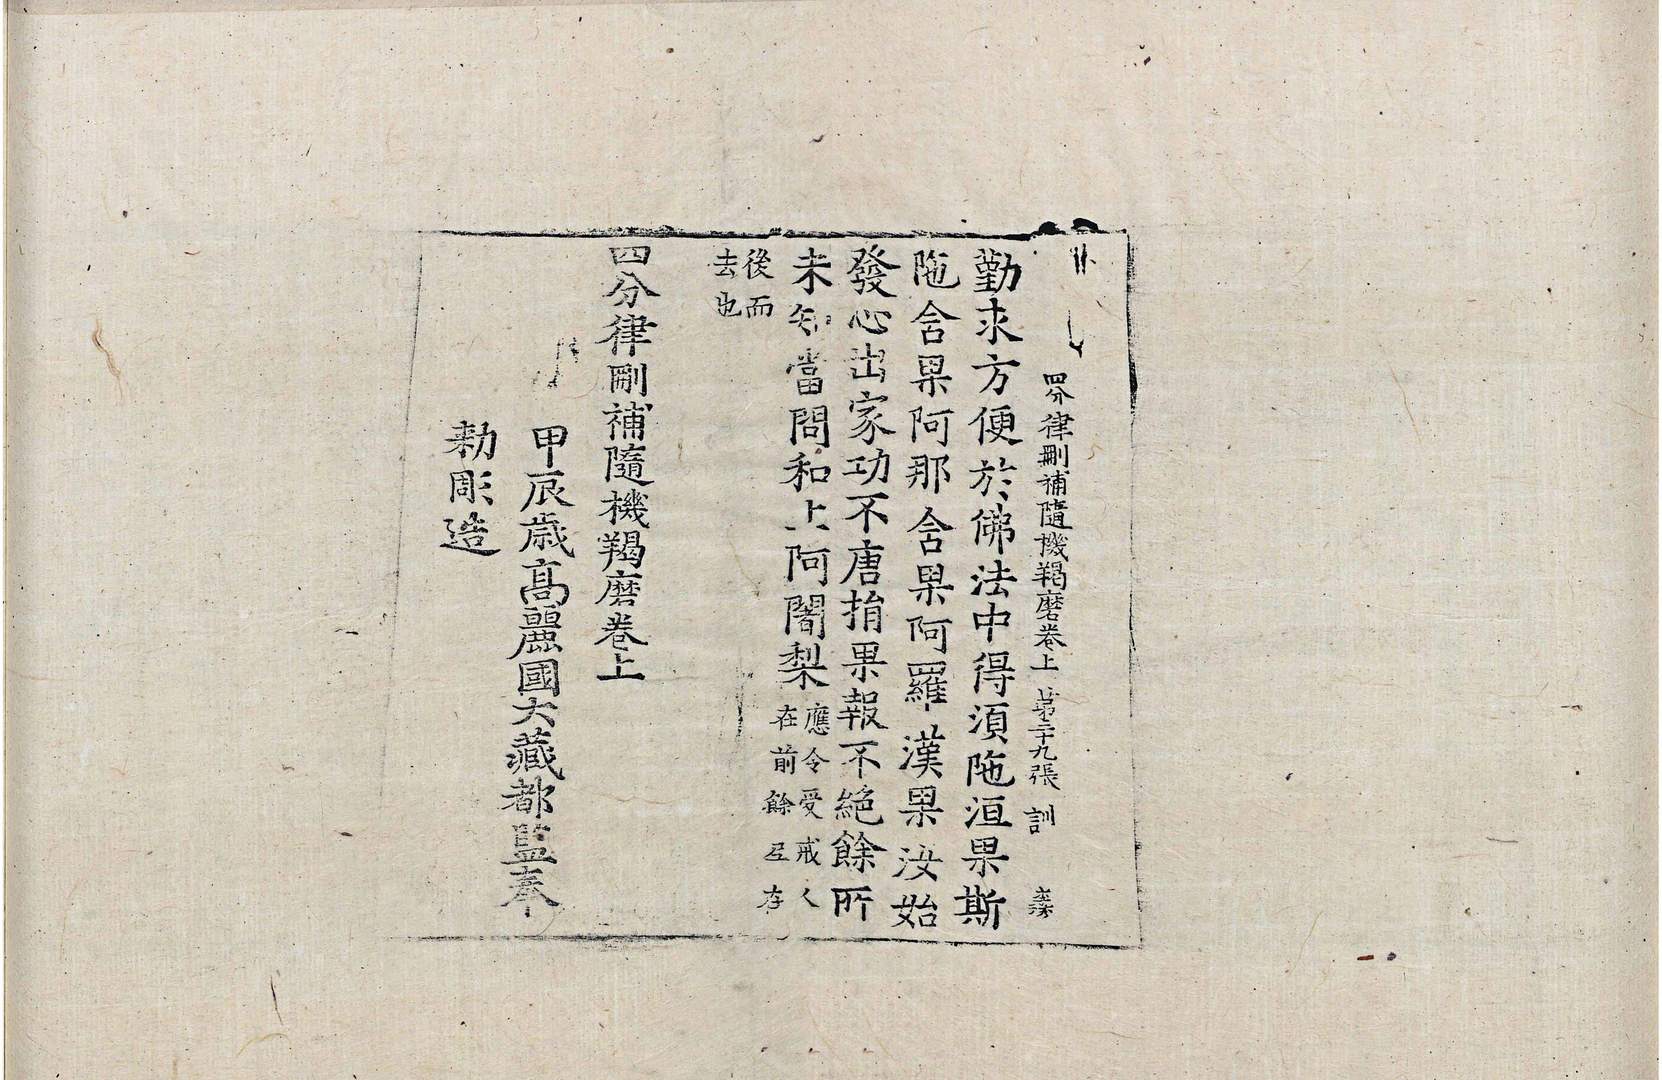 四分律刪補隨機羯磨卷上 第二十九張 訓
勤求方便於佛法中得須陁洹果斯
陁含果阿那含果阿羅漢果汝始
發心出家功不唐捐果報不絕餘所
未知當問和上阿闍梨應令受戒人
在前餘尼在
後而
去也
四分律刪補隨機羯磨卷上
甲辰歲高麗國大藏都監奉
勑彫造